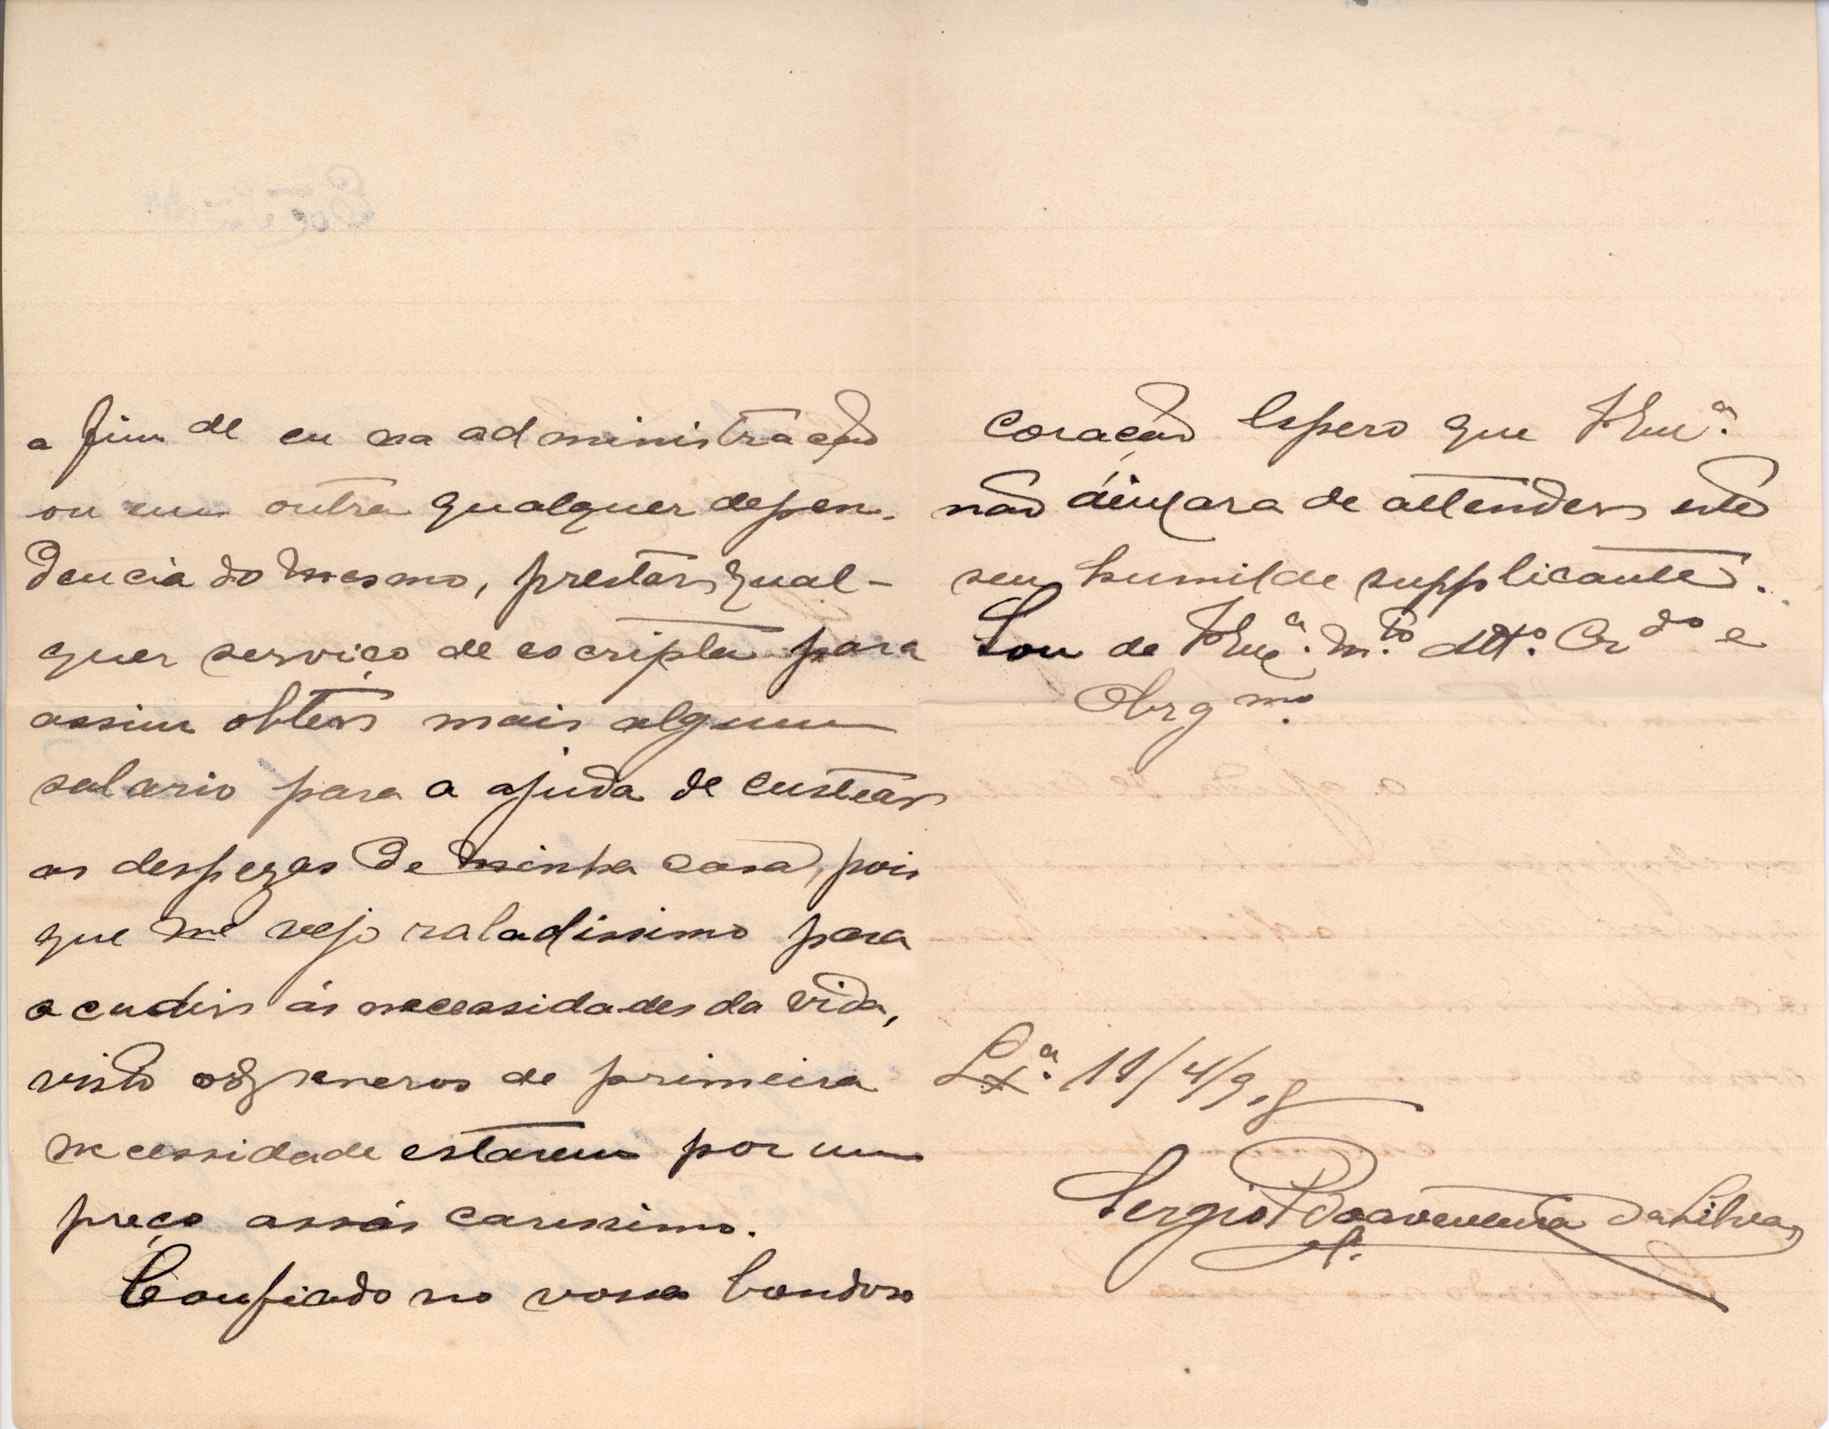 a fim de eu na administração
ou em outra qualquer depen-
dencia do mesmo, prestar qual-
quer serviço de escripta para
assim obter mais algum
salario para a ajuda de custear
as despezas de minha casa, pois
que me vejo raladissimo para
acudir ás necessidades da vida,
visto os generos de primeira
necessidade estarem por um
preço assás carissimo.
Confiado no vosso bondoso
coração Espero que V. Exª.
não deixara de attender este
seu humilde supplicante.
Sou de V. Exª. M.to Att.º Cr.do e
Obrg.mo
Lxª. 11/4/918
Sergio Boaventura da Silva